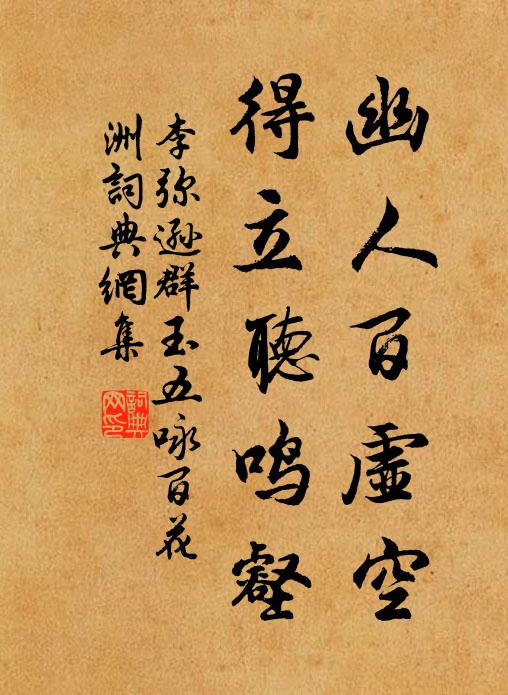 幽人百虛空
得立聽鳴壑
李弥遜群玉五咏百花
洲詞典網集
詞典网印